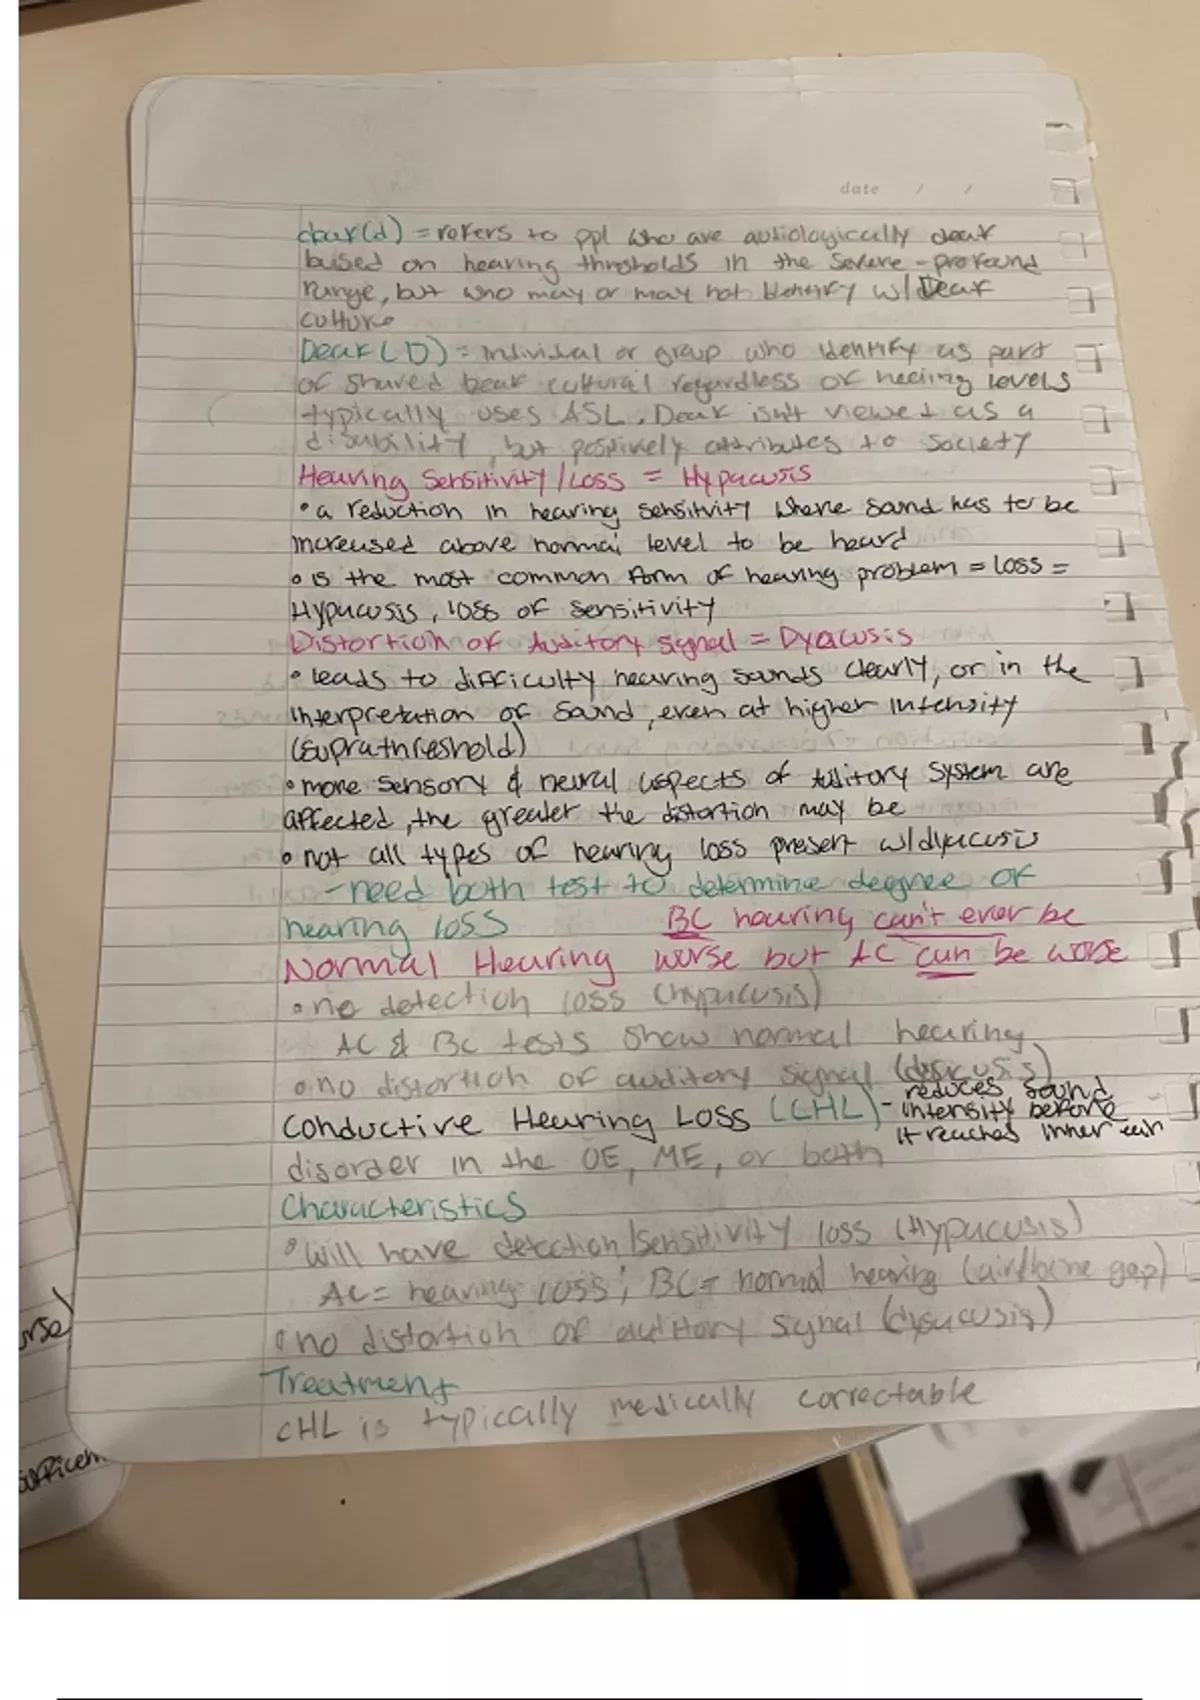 date / /
deaf(d) = refers to ppl who are audiologically deaf
based on hearing thresholds in the severe-profound
range, but who may or may not identify w/ Deaf
culture
Deaf (D) = individual or group who identify as part
of shared Deaf cultural regardless of hearing levels
typically uses ASL. Deaf isn't viewed as a
disability, but positively attributes to society
Hearing Sensitivity/Loss = Hypacusis
• a reduction in hearing sensitivity where sound has to be
increased above normal level to be heard
• is the most common form of hearing problem = loss =
Hypacusis, loss of sensitivity
Distortion of Auditory signal = Dyacusis
• leads to difficulty hearing sounds clearly, or in the
interpretation of sound, even at higher intensity
(suprathreshold)
• more sensory & neural aspects of auditory system are
affected, the greater the distortion may be
• not all types of hearing loss present w/ dyacusis
- need both test to determine degree of
hearing loss
BC hearing can't ever be
worse but AC can be worse
Normal Hearing
• no detection loss (hypacusis)
AC & BC tests show normal hearing
• no distortion of auditory signal
Conductive Hearing Loss (CHL) - reduces sound
intensity before
it reaches inner ear
disorder in the OE, ME, or both
Characteristics
• will have detection/sensitivity loss (Hypacusis)
AC = hearing loss; BC = normal hearing (air/bone gap)
• no distortion of auditory signal (dysacusis)
Treatment
CHL is typically medically correctable